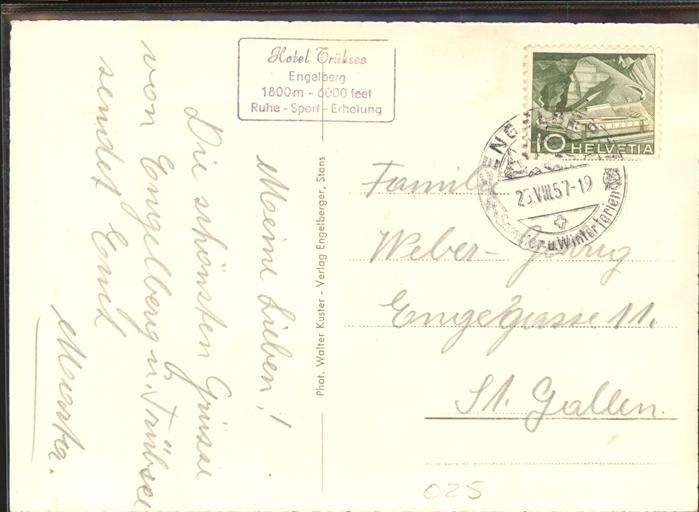 Hotel Trübsee
Engelberg
1800m - 6000 feet
Ruhe - Sport - Erholung
Meine Lieben!
Die schönsten Grüsse
von Engelberg u. Trübsee
sendet Euch
Phot. Walter Kuster - Verlag Engelberger, Stans
10 HELVETIA
ENGELBERG
25.VIII.57-19
Sommer u. Winterferien
Familie
Weber-
Engelgasse 11.
St. Gallen.
025